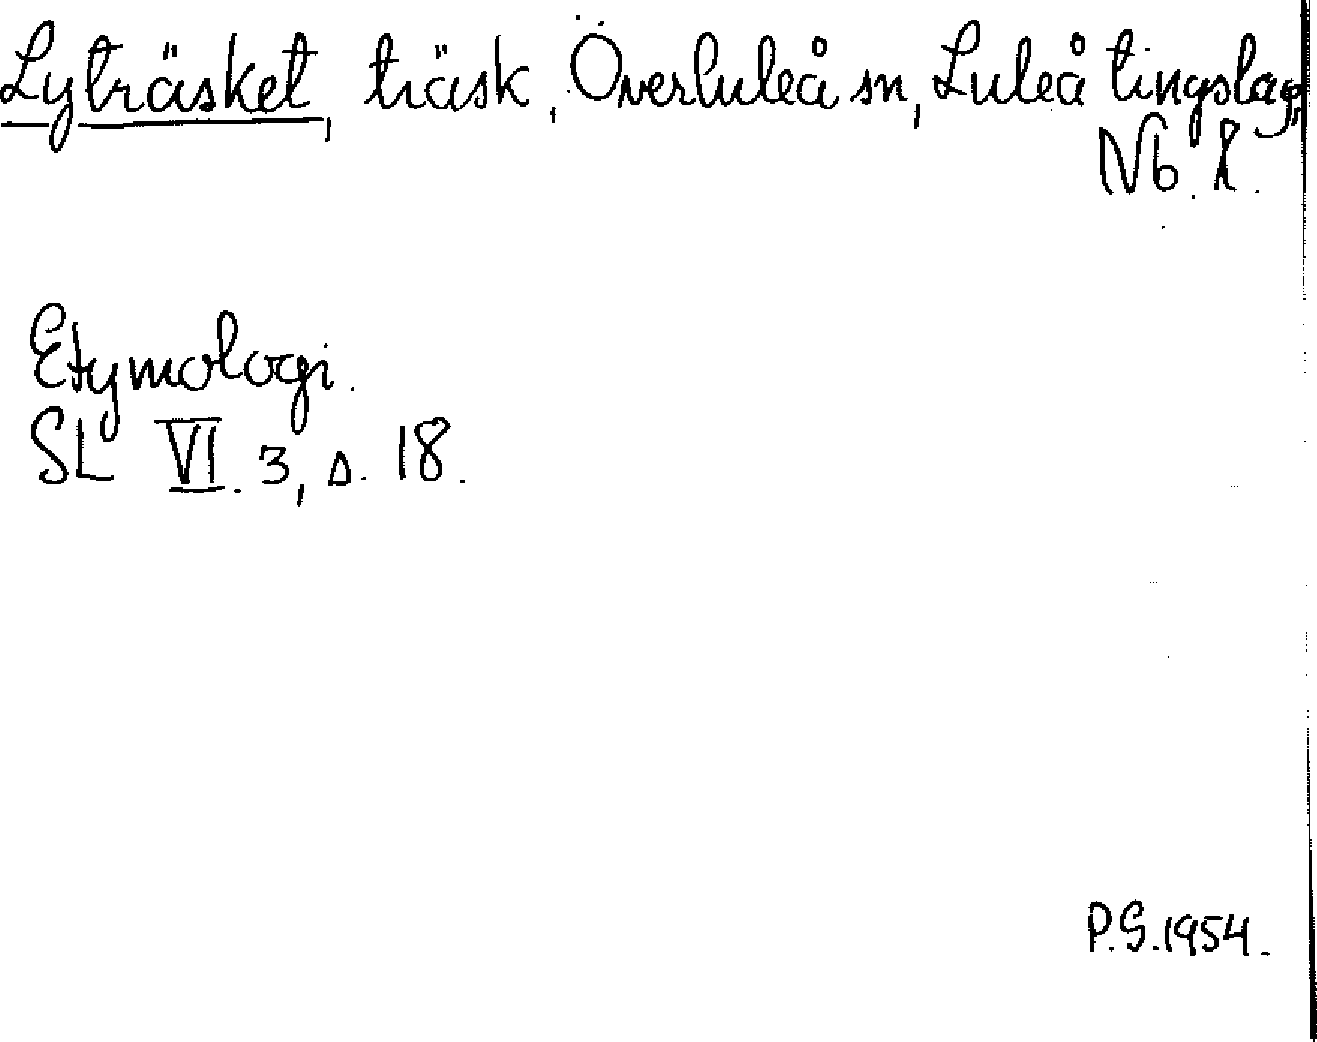 Lyträsket, träsk, Överluleå sn, Luleå tingslag,
Nb. l.
Etymologi.
SL VI. 3, s. 18.
P.S. 1954.